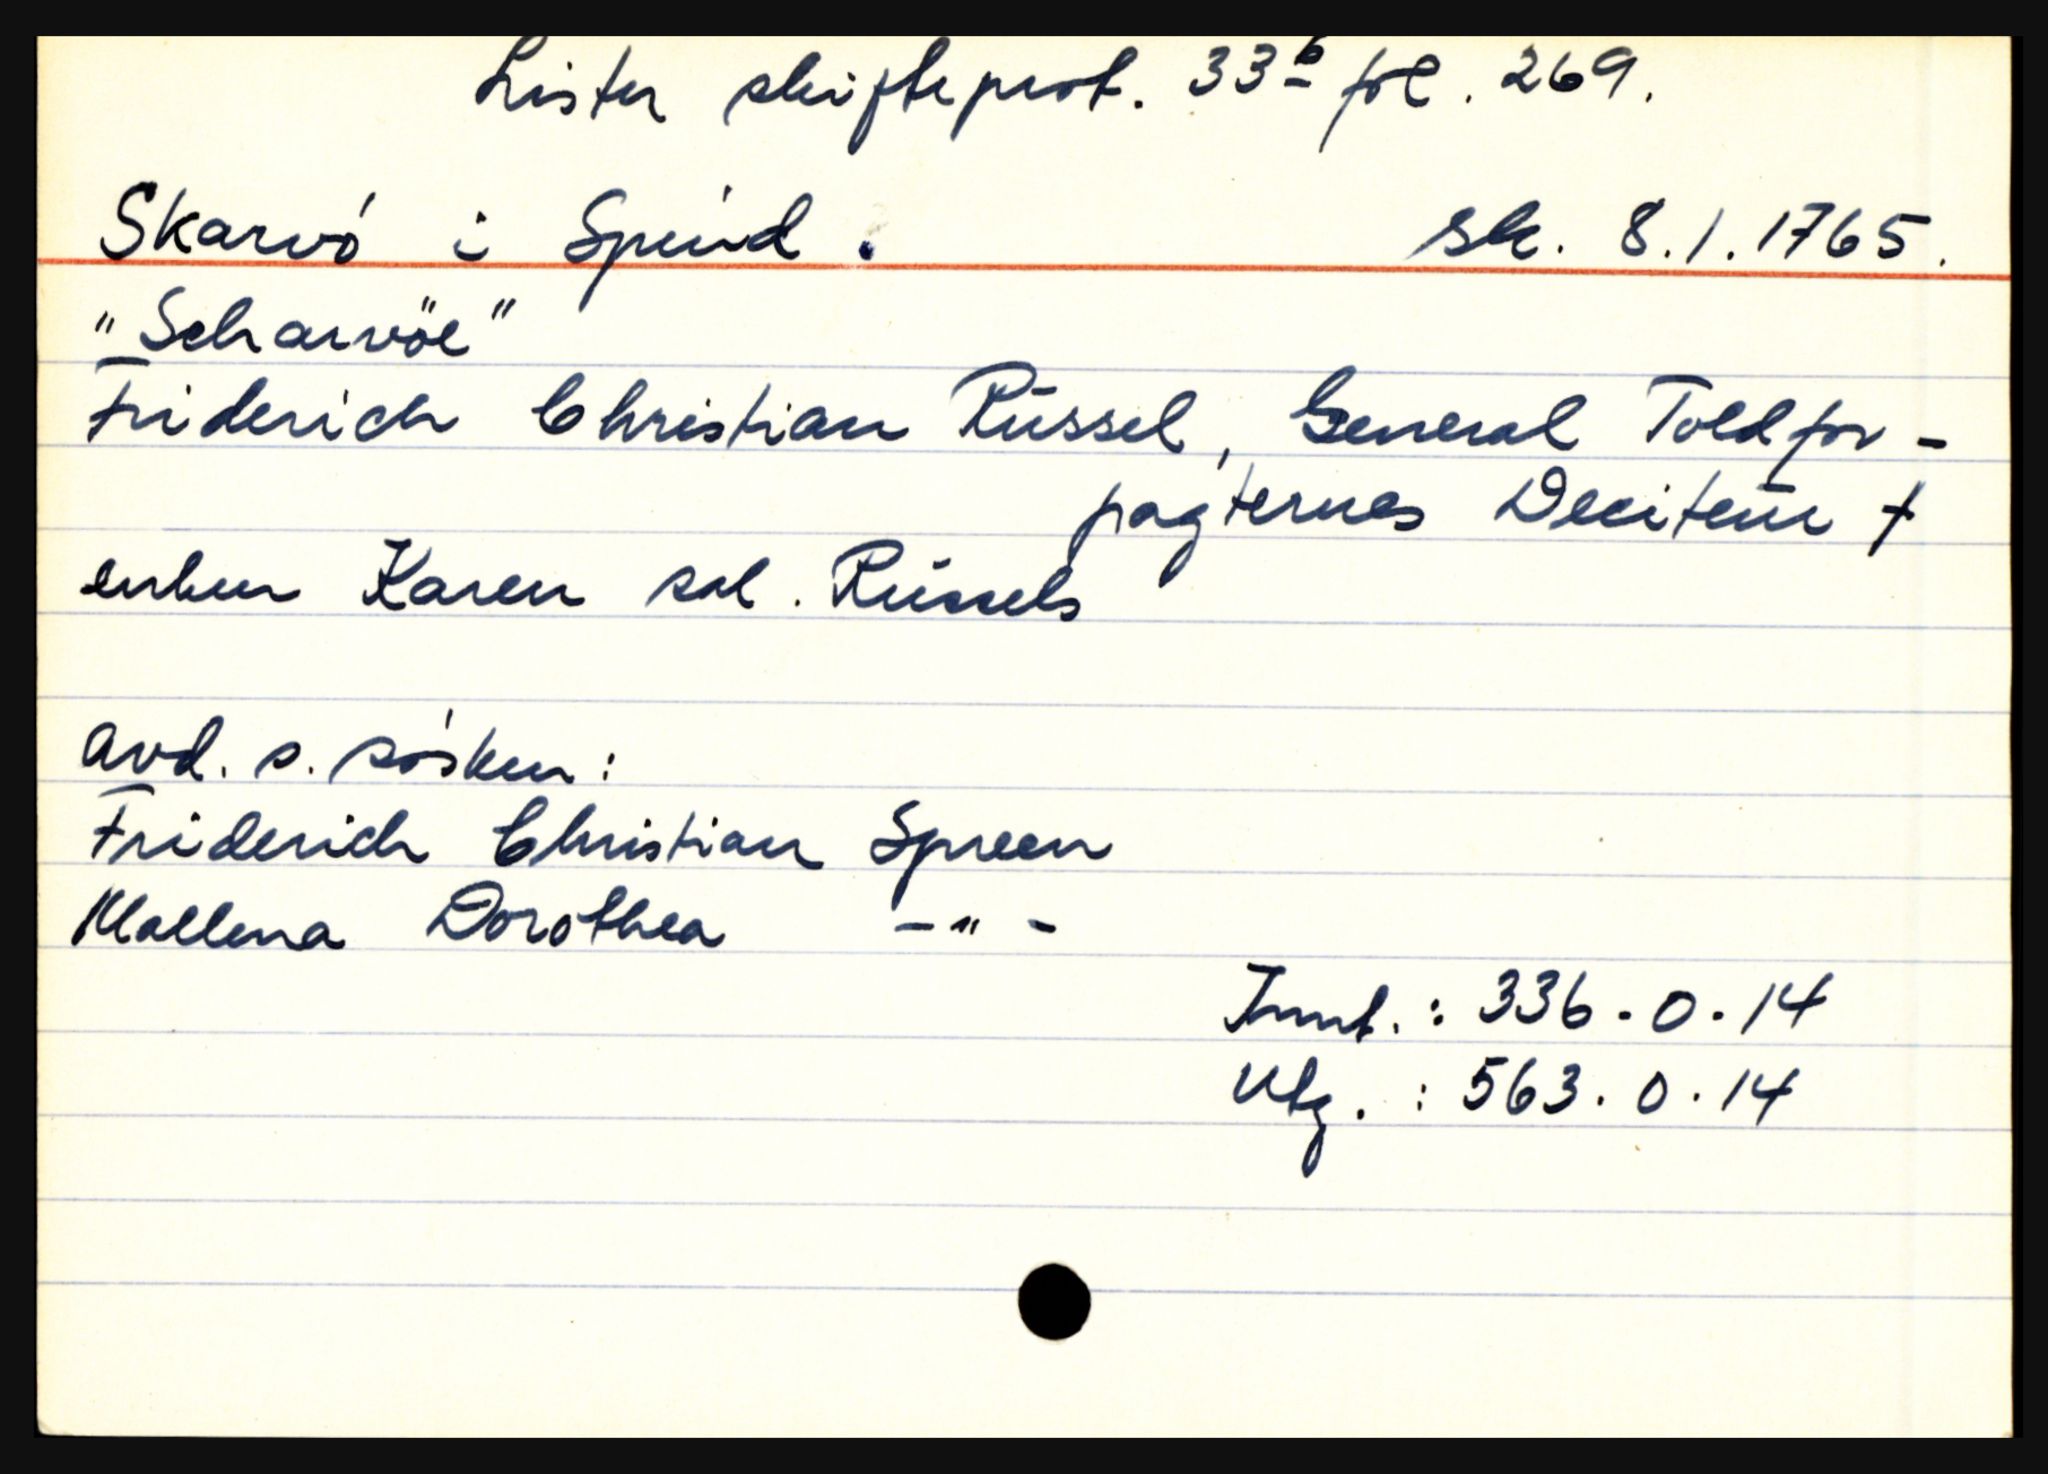 Lister skifteprot. 33b fol. 269.
Skarvö i Spind. sk. 8.1.1765.
"Scharvöe"
Friderich Christian Rüssel, General Toldfor-
pagternes Visiteur †
enken Karen sal. Rüssels
avd. s. søsken:
Friderich Christian Spreen
Mallena Dorothea -"-
Innt.: 336.0.14
Utg.: 563.0.14